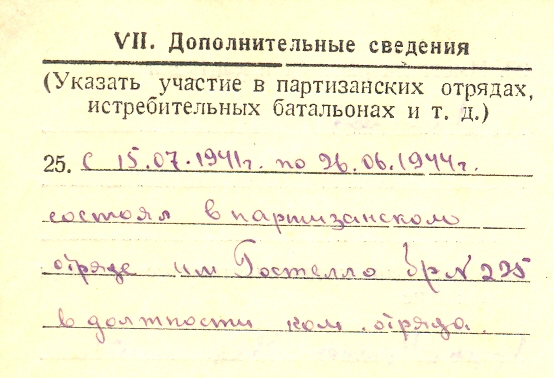 VII. Дополнительные сведения
(Указать участие в партизанских отрядах,
истребительных батальонах и т. д.)
25. С 15.07.1941г. по 26.06.1944г.
состоял в партизанском
отряде им Гостелло бр N 225
в должности ком. отряда.